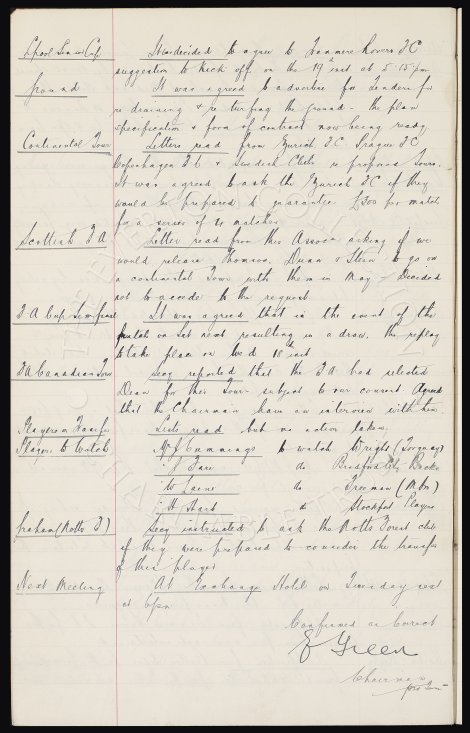 L'pool Senior Cup It was decided to agree to Tranmere Rovers F C
suggestion to kick off on the 19th inst at 5.15 pm
Ground It was agreed to advertise for Tenders for
re draining & re turfing the ground - the plan
specification & form of contract now being ready.
Continental Tour Letters read from Zurich F.C. Prague F C
Copenhagen F C & Swedish Clubs re proposed Tours.
It was agreed to ask the Zurich F C if they
would be prepared to guarantee £300 per match
for a series of matches
Scottish F A Letter read from this Assocn asking if we
would release Thomson, Dunn & Stein to go on
a continental Tour with them in May - Decided
not to accede to the request.
F A Cup semi final It was agreed that in the event of the
match on Sat next resulting in a draw, the replay
to take place on Wed 18th inst
FA Canadian Tour Secy reported that the F A had selected
Dean for their Tour subject to our consent. Agreed
that the Chairman have an interview with him
Players on Transfer Lists read but no action taken.
Players to Watch Mr J Cummings to watch Wright (Torquay)
" do Bradford City
" do Freeman
" H do Stockport Players
Graham (Notts F) Secy instructed to ask the Notts Forest club
if they were prepared to consider the transfer
of this player
Next Meeting At Exchange Hotel on Tuesday next
at 6pm
Confirmed as Correct
E Green
Chairman
pro tem